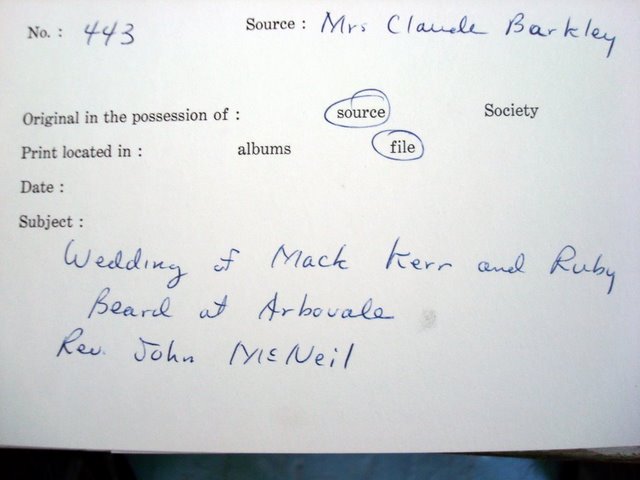 No. : 443 Source : Mrs Claude Barkley
Original in the possession of : source Society
Print located in : albums file
Date :
Subject :
Wedding of Mack Kerr and Ruby
Beard at Arbovale
Rev. John McNeil